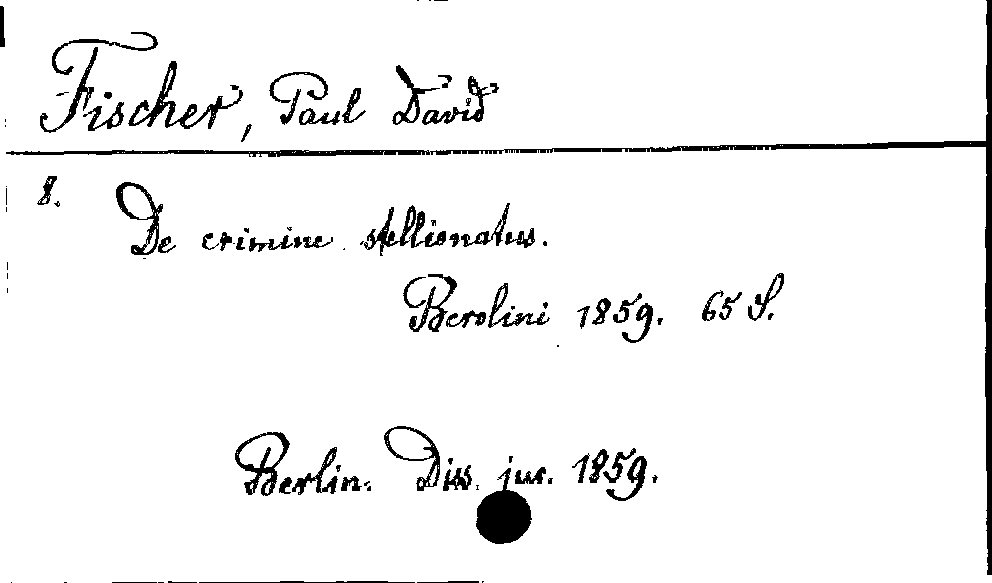 Fischer, Paul David
8.
De crimine stellionatus.
Berolini 1859. 65 S.
Berlin. Diss. jur. 1859.